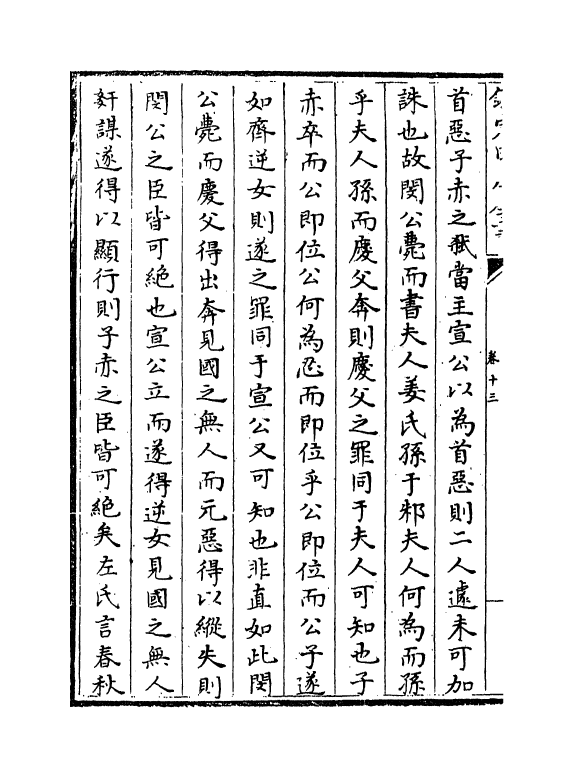 卷十三
首惡子赤之弑當主宣公以為首惡則二人遽未可加
誅也故閔公薨而書夫人姜氏孫于邾夫人何為而孫
乎夫人孫而慶父奔則慶父之罪同于夫人可知也子
赤卒而公即位公何為忍而即位乎公即位而公子遂
如齊逆女則遂之罪同于宣公又可知也非直如此閔
公薨而慶父得出奔見國之無人而元惡得以縱失則
閔公之臣皆可絶也宣公立而遂得逆女見國之無人
姧謀遂得以顯行則子赤之臣皆可絶矣左氏言春秋